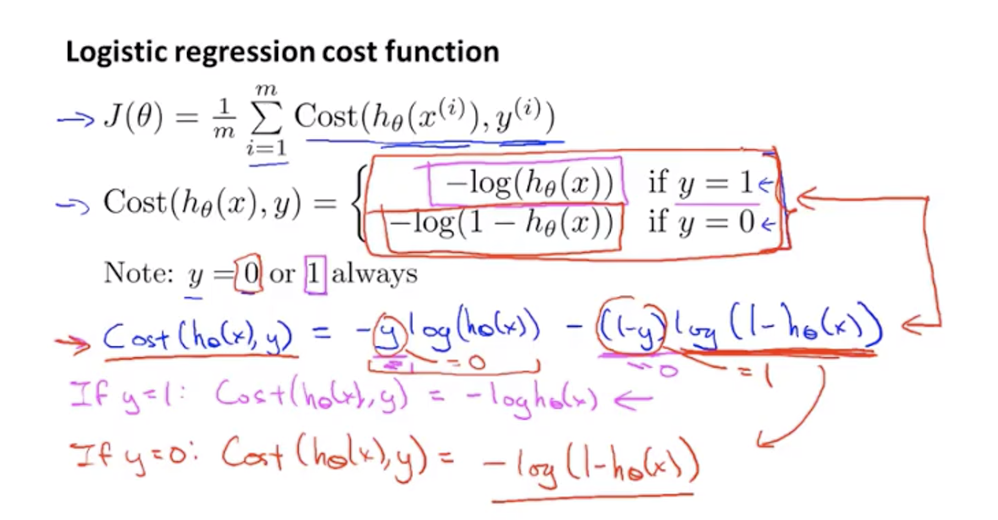 Logistic regression cost function
→ J(θ) = 1/m ∑_{i=1}^{m} Cost(h_θ(x^{(i)}), y^{(i)})
→ Cost(h_θ(x), y) = { −log(h_θ(x)) if y = 1 ←
−log(1 − h_θ(x)) if y = 0 ←
Note: y = 0 or 1 always
→ Cost(h_θ(x), y) = -y log(h_θ(x)) - ((1-y) log(1-h_θ(x)) ←
=1 =0 =0 =1
If y=1: Cost(h_θ(x), y) = -log h_θ(x) ←
If y=0: Cost(h_θ(x), y) = -log(1-h_θ(x))